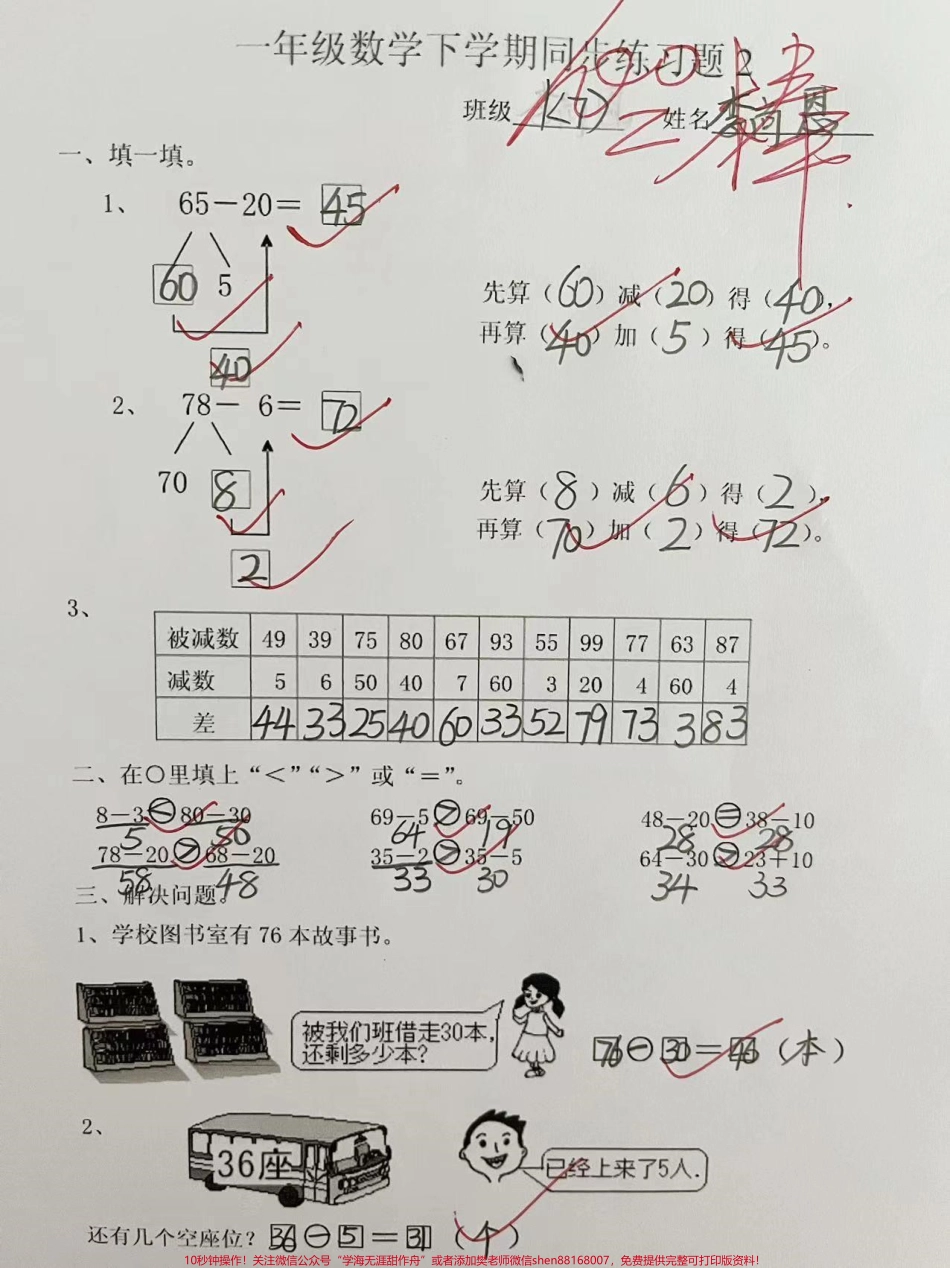 一年级数学下学期同步练习题2
班级 1(7) 姓名 李
一、填一填。
1、 65-20= 45
60 5
先算(60)减(20)得(40),
再算(40)加(5)得(45)。
40
2、 78- 6= 72
70 8
先算(8)减(6)得(2),
再算(70)加(2)得(72)。
2
3、
被减数 49 39 75 80 67 93 55 99 77 63 87
减数 5 6 50 40 7 60 3 20 4 60 4
差 44 33 25 40 60 33 52 79 73 3 83
二、在○里填上“<”“>”或“=”。
8-3<80-30 69-5>69-50 48-20=38-10
5 50 64 19 28 28
78-20>68-20 35-2>35-5 64-30>23+10
58 48 33 30 34 33
三、解决问题。
1、学校图书室有76本故事书。
被我们班借走30本,
还剩多少本?
76-30=46(本)
2、
36座
已经上来了5人.
还有几个空座位? 36-5=31(个)
10秒钟操作!关注微信公众号“学海无涯甜作舟”或者添加樊老师微信shen88168007,免费提供完整可打印版资料!